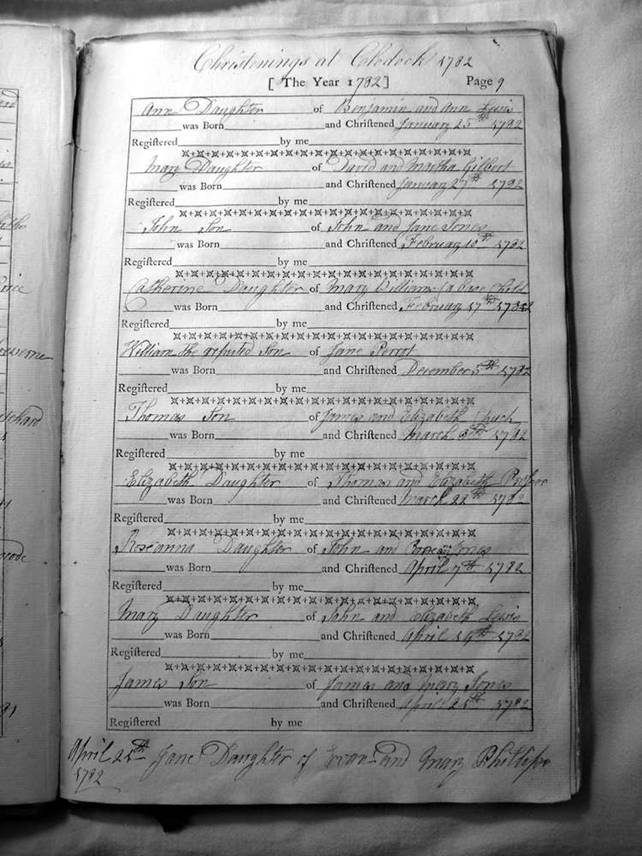 Christenings at Clodock 1782
[ The Year 1782 ] Page 9
Ann Daughter of Benjamin and Ann Lewis
was Born and Chriſtened January 25th 1782
Regiſtered by me
Mary Daughter of David and Martha Gilbert
was Born and Chriſtened January 27th 1782
Regiſtered by me
John Son of John and Jane Jones
was Born and Chriſtened February 10th 1782
Regiſtered by me
Catherine Daughter of Mary Williams a base Child
was Born and Chriſtened February 17th 1782
Regiſtered by me
William the reputed Son of Jane Perrot
was Born and Chriſtened December 5th 1782
Regiſtered by me
Thomas Son of James and Elizabeth
was Born and Chriſtened March 1782
Regiſtered by me
Elizabeth Daughter of Thomas and Elizabeth Prosser
was Born and Chriſtened March 22th 1782
Regiſtered by me
Roseanna Daughter of John and Jones
was Born and Chriſtened April 7th 1782
Regiſtered by me
Mary Daughter of John and Elizabeth Lewis
was Born and Chriſtened April 14th 1782
Regiſtered by me
James Son of James and Mary Jones
was Born and Chriſtened April 25th 1782
Regiſtered by me
April 25th Jane Daughter of Evan and Mary
1782